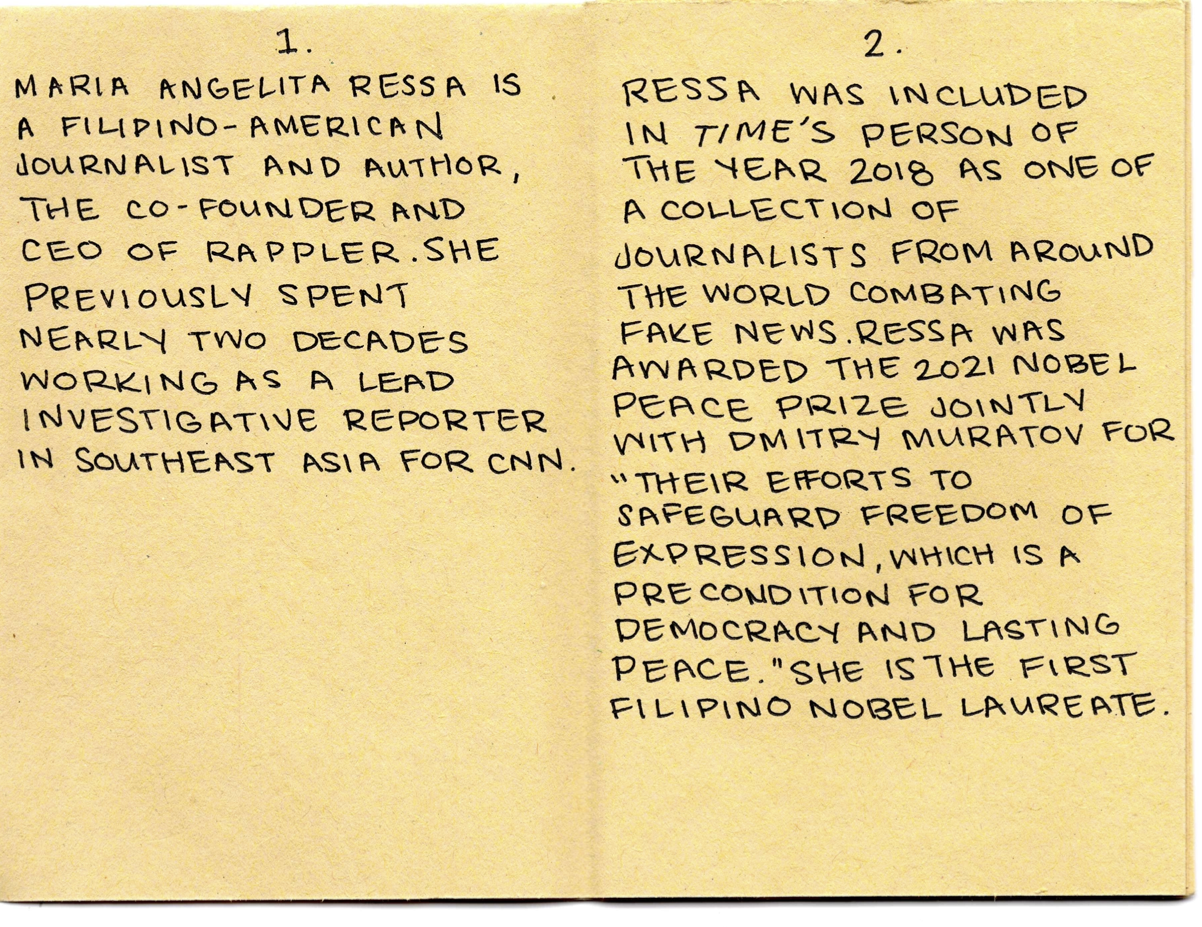 1.
MARIA ANGELITA RESSA IS
A FILIPINO-AMERICAN
JOURNALIST AND AUTHOR,
THE CO-FOUNDER AND
CEO OF RAPPLER. SHE
PREVIOUSLY SPENT
NEARLY TWO DECADES
WORKING AS A LEAD
INVESTIGATIVE REPORTER
IN SOUTHEAST ASIA FOR CNN.
2.
RESSA WAS INCLUDED
IN TIME'S PERSON OF
THE YEAR 2018 AS ONE OF
A COLLECTION OF
JOURNALISTS FROM AROUND
THE WORLD COMBATING
FAKE NEWS. RESSA WAS
AWARDED THE 2021 NOBEL
PEACE PRIZE JOINTLY
WITH DMITRY MURATOV FOR
"THEIR EFFORTS TO
SAFEGUARD FREEDOM OF
EXPRESSION, WHICH IS A
PRECONDITION FOR
DEMOCRACY AND LASTING
PEACE." SHE IS THE FIRST
FILIPINO NOBEL LAUREATE.